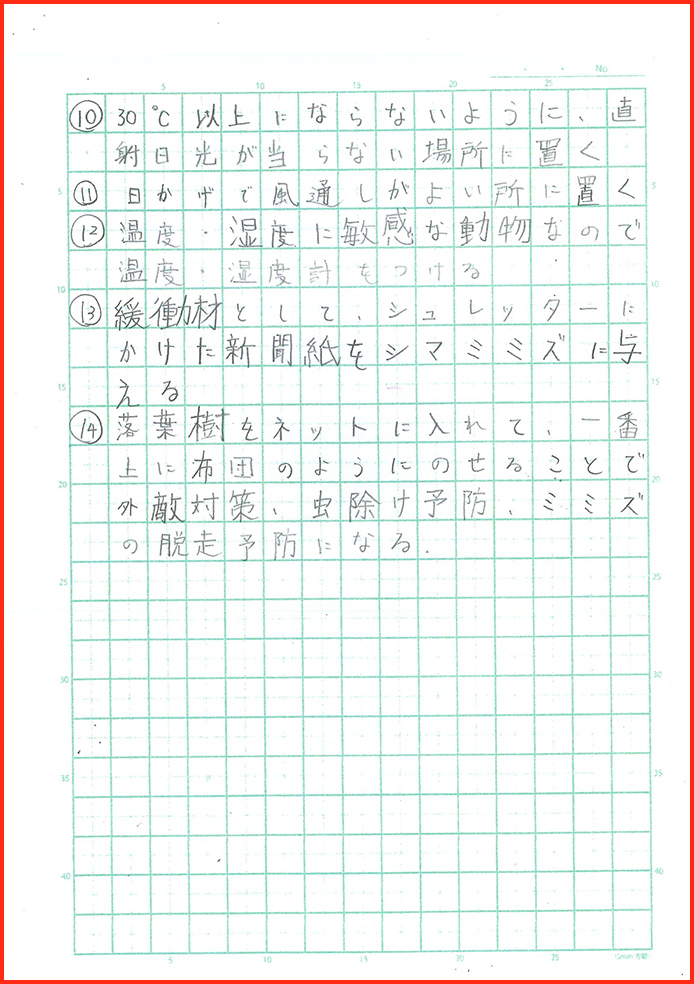 No.
5 10 15 20 25
⑩ 30℃以上にならないように、直
射日光が当らない場所に置く
⑪ 日かげで風通しがよい所に置く
⑫ 温度・湿度に敏感な動物なので
温度・湿度計をつける
⑬ 緩衝材として、シュレッターに
かけた新聞紙をシマミミズに与
える
⑭ 落葉樹をネットに入れて、一番
上に布団のようにのせることで
外敵対策、虫除け予防、ミミズ
の脱走予防になる.
5 5
10 10
15 15
20 20
25 25
30 30
35 35
40 40
5 10 15 20 25